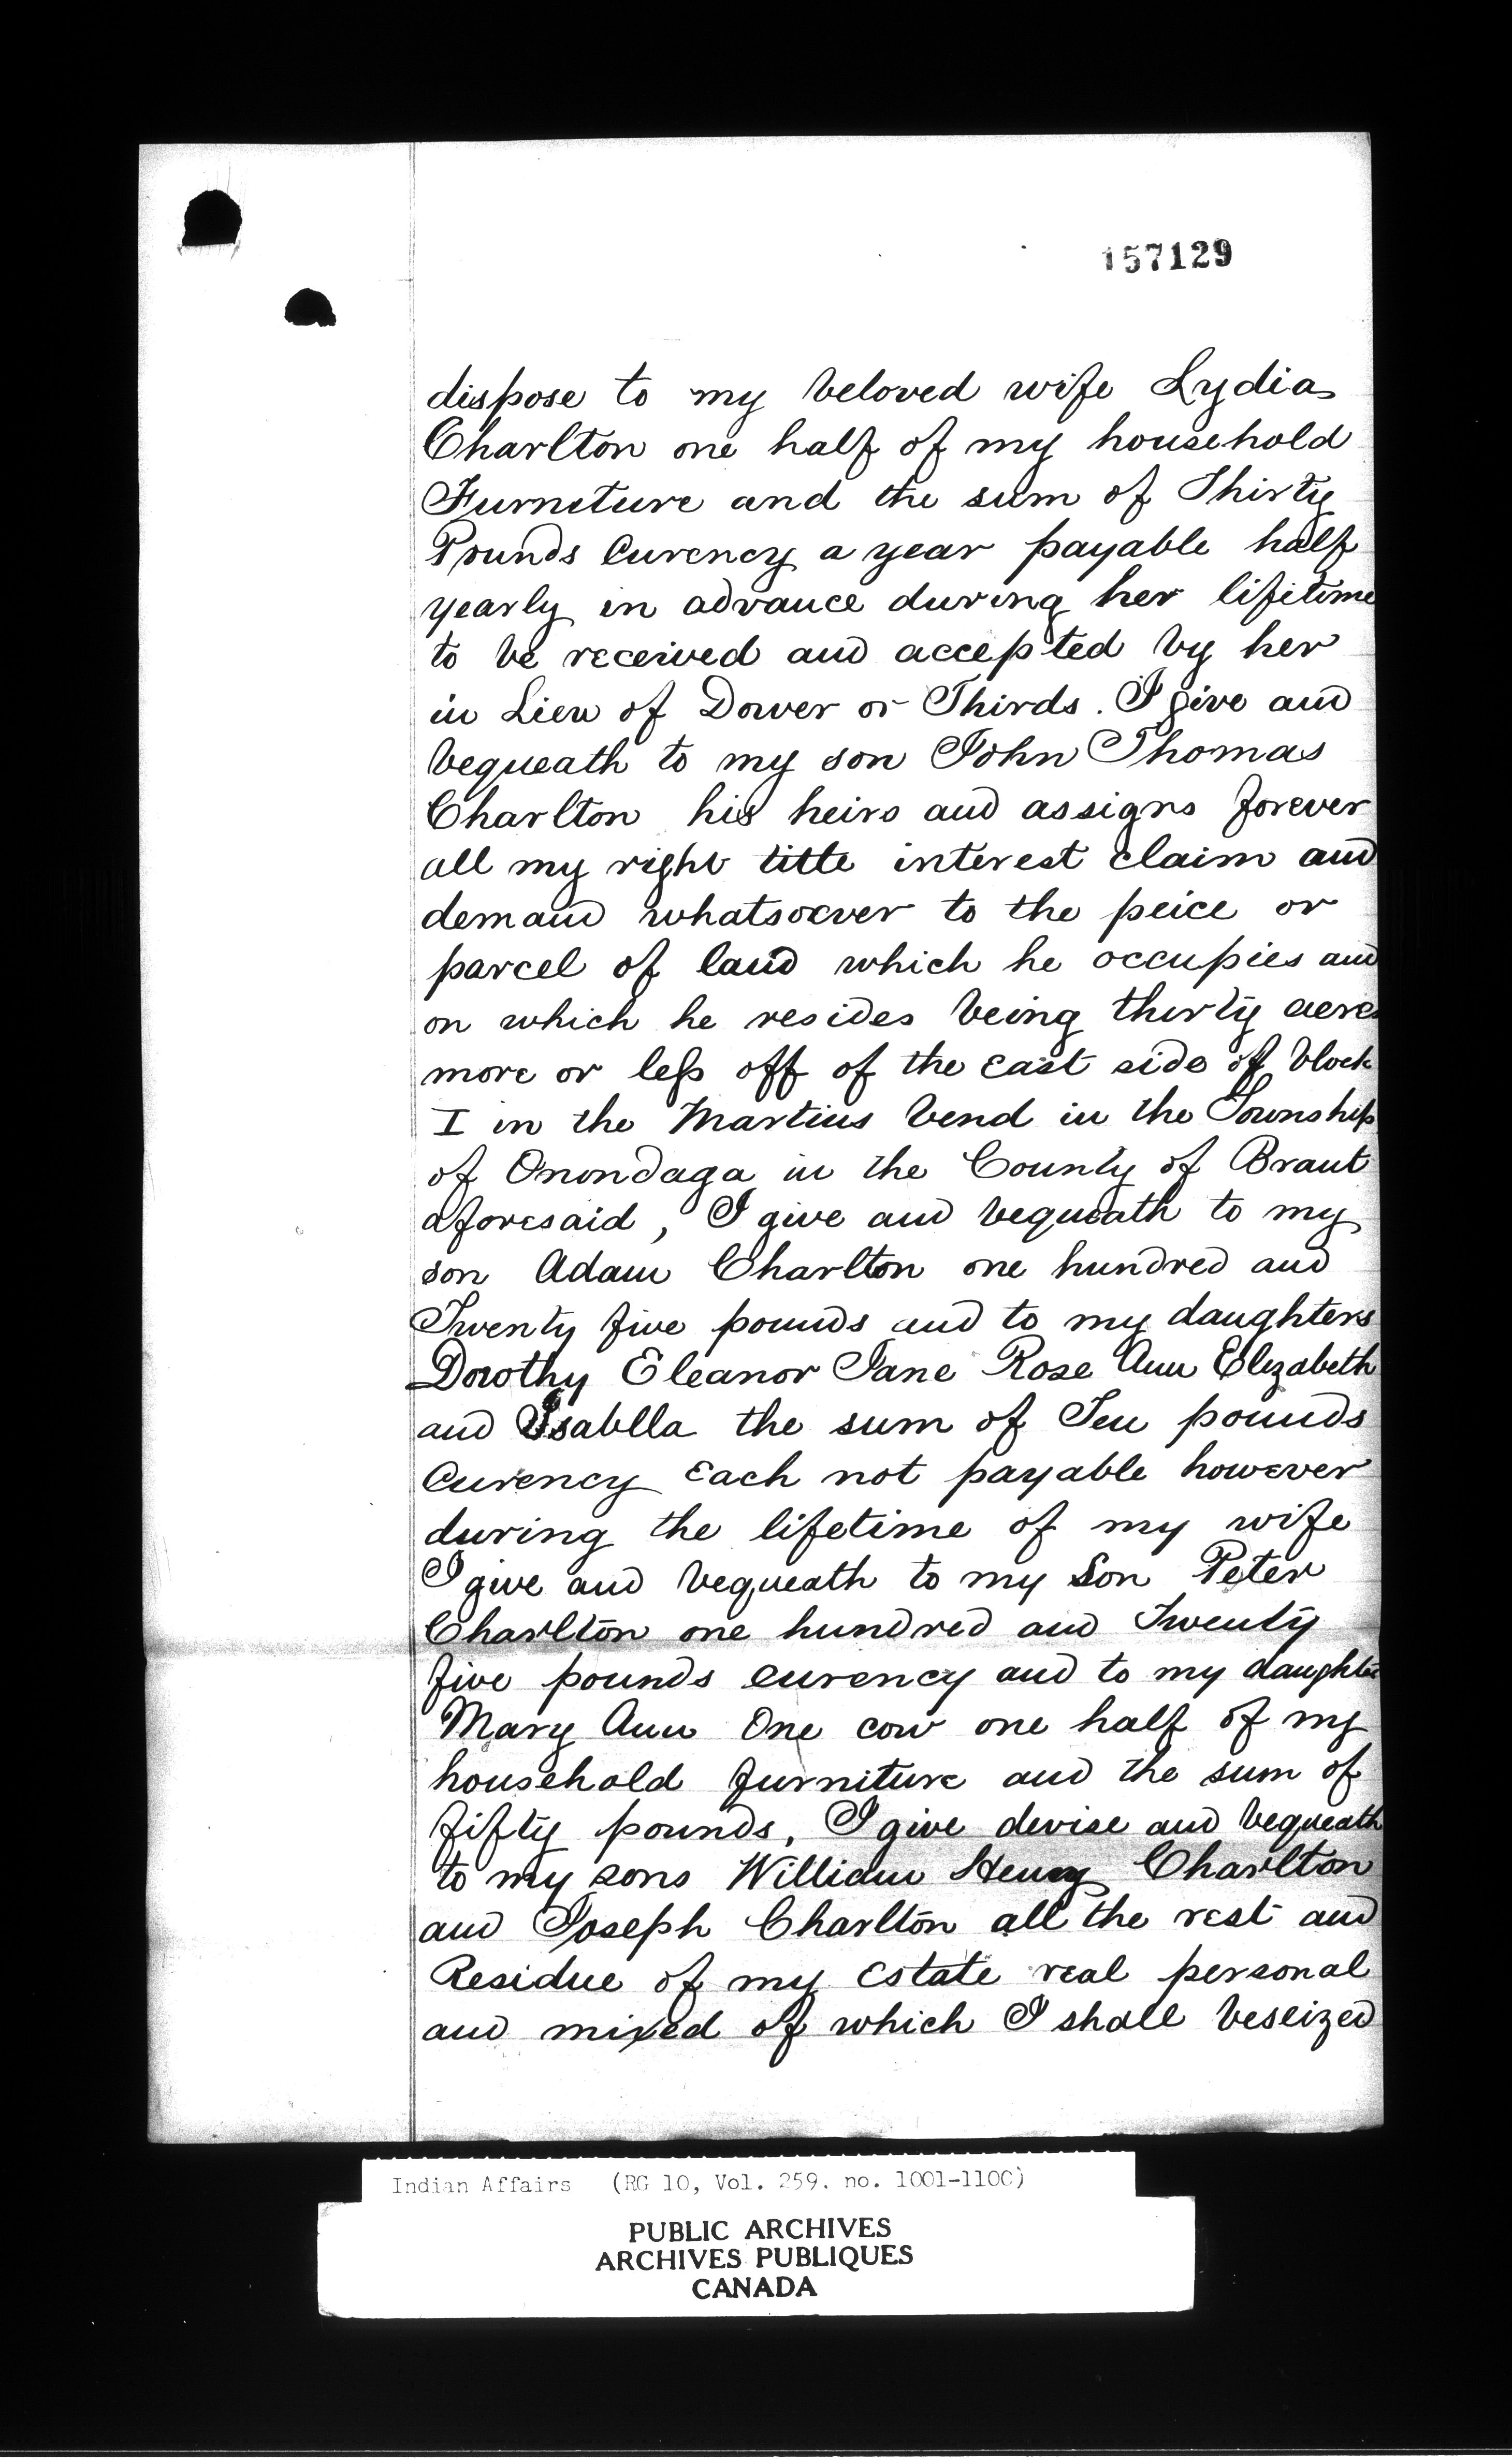 157129
dispose to my beloved wife Lydia
Charlton one half of my household
Furniture and the sum of Thirty
Pounds Curency a year payable half
yearly in advance during her lifetime
to be received and accepted by her
in Lieu of Dower or Thirds. I give and
bequeath to my son John Thomas
Charlton his heirs and assigns forever
all my right title interest claim and
demand whatsoever to the peice or
parcel of land which he occupies and
on which he resides being thirty acres
more or less off of the east side of block
I in the Martins bend in the Township
of Onondaga in the County of Brant
aforesaid, I give and bequeath to my
son Adam Charlton one hundred and
Twenty five pounds and to my daughters
Dorothy Eleanor Jane Rose Ann Elizabeth
and Isablla the sum of Ten pounds
Curency Each not payable however
during the lifetime of my wife
I give and bequeath to my Son Peter
Charlton one hundred and Twenty
five pounds curency and to my daughter
Mary Ann One cow one half of my
household furniture and the sum of
fifty pounds, I give devise and bequeath
to my sons William Henry Charlton
and Joseph Charlton all the rest and
Residue of my Estate real personal
and mixed of which I shall beseized
Indian Affairs (RG 10, Vol. 259. no. 1001-1100)
PUBLIC ARCHIVES
ARCHIVES PUBLIQUES
CANADA